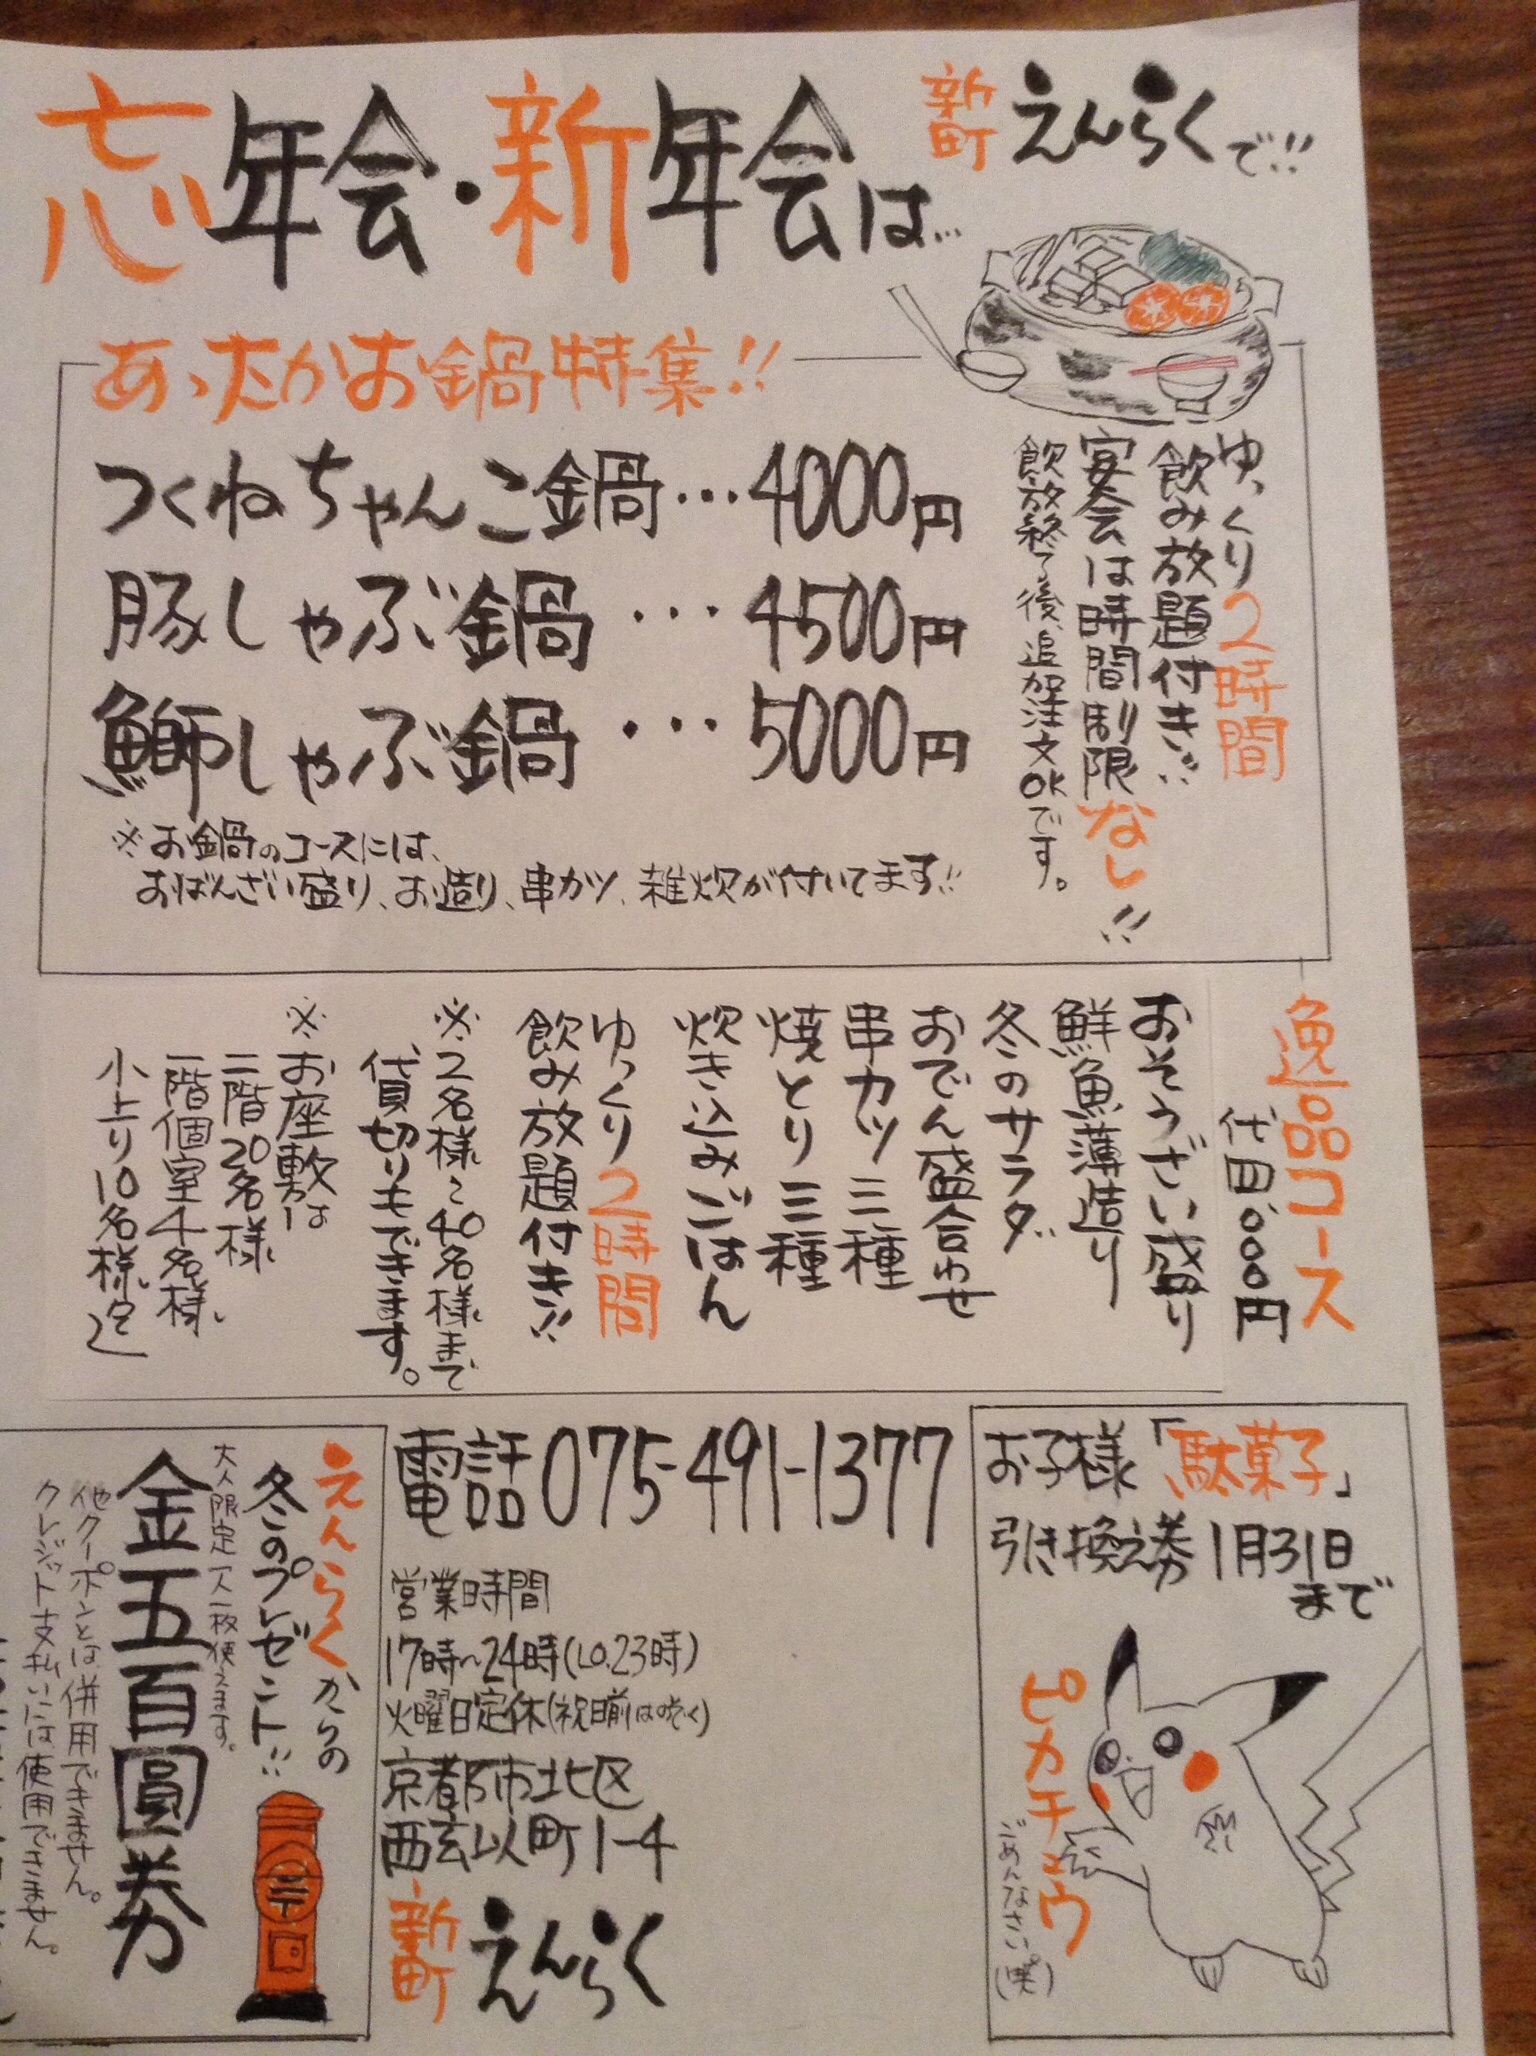 忘年会・新年会は…
新町 えんらくで!!
あったかお鍋特集!!
つくねちゃんこ鍋…4000円
豚しゃぶ鍋…4500円
鰤しゃぶ鍋…5000円
※お鍋のコースには、
おばんざい盛り、お造り、串カツ、雑炊が付いてます!!
ゆっくり2時間
飲み放題付き!!
宴会は時間制限なし!!
飲放終了後、追加注文OKです。
逸品コース
代四、000円
おそうざい盛り
鮮魚薄造り
冬のサラダ
おでん盛合わせ
串カツ三種
焼とり三種
炊き込みごはん
ゆっくり2時間
飲み放題付き!!
※2名様〜40名様まで
貸切りもできます。
※お座敷は
二階20名様
一階個室4名様
小上り10名様迄
お子様「駄菓子」
引き換え券 1月31日
まで
ピカチュウ
ごめんなさい。(笑)
電話075-491-1377
営業時間
17時〜24時(LO.23時)
火曜日定休(祝日前はのぞく)
京都市北区
西玄以町1-4
新町 えんらく
えんらくからの
冬のプレゼント!!
大人限定一人一枚使えます。
金五百圓券
他クーポンとは併用できません。
クレジット支払いには使用できません。